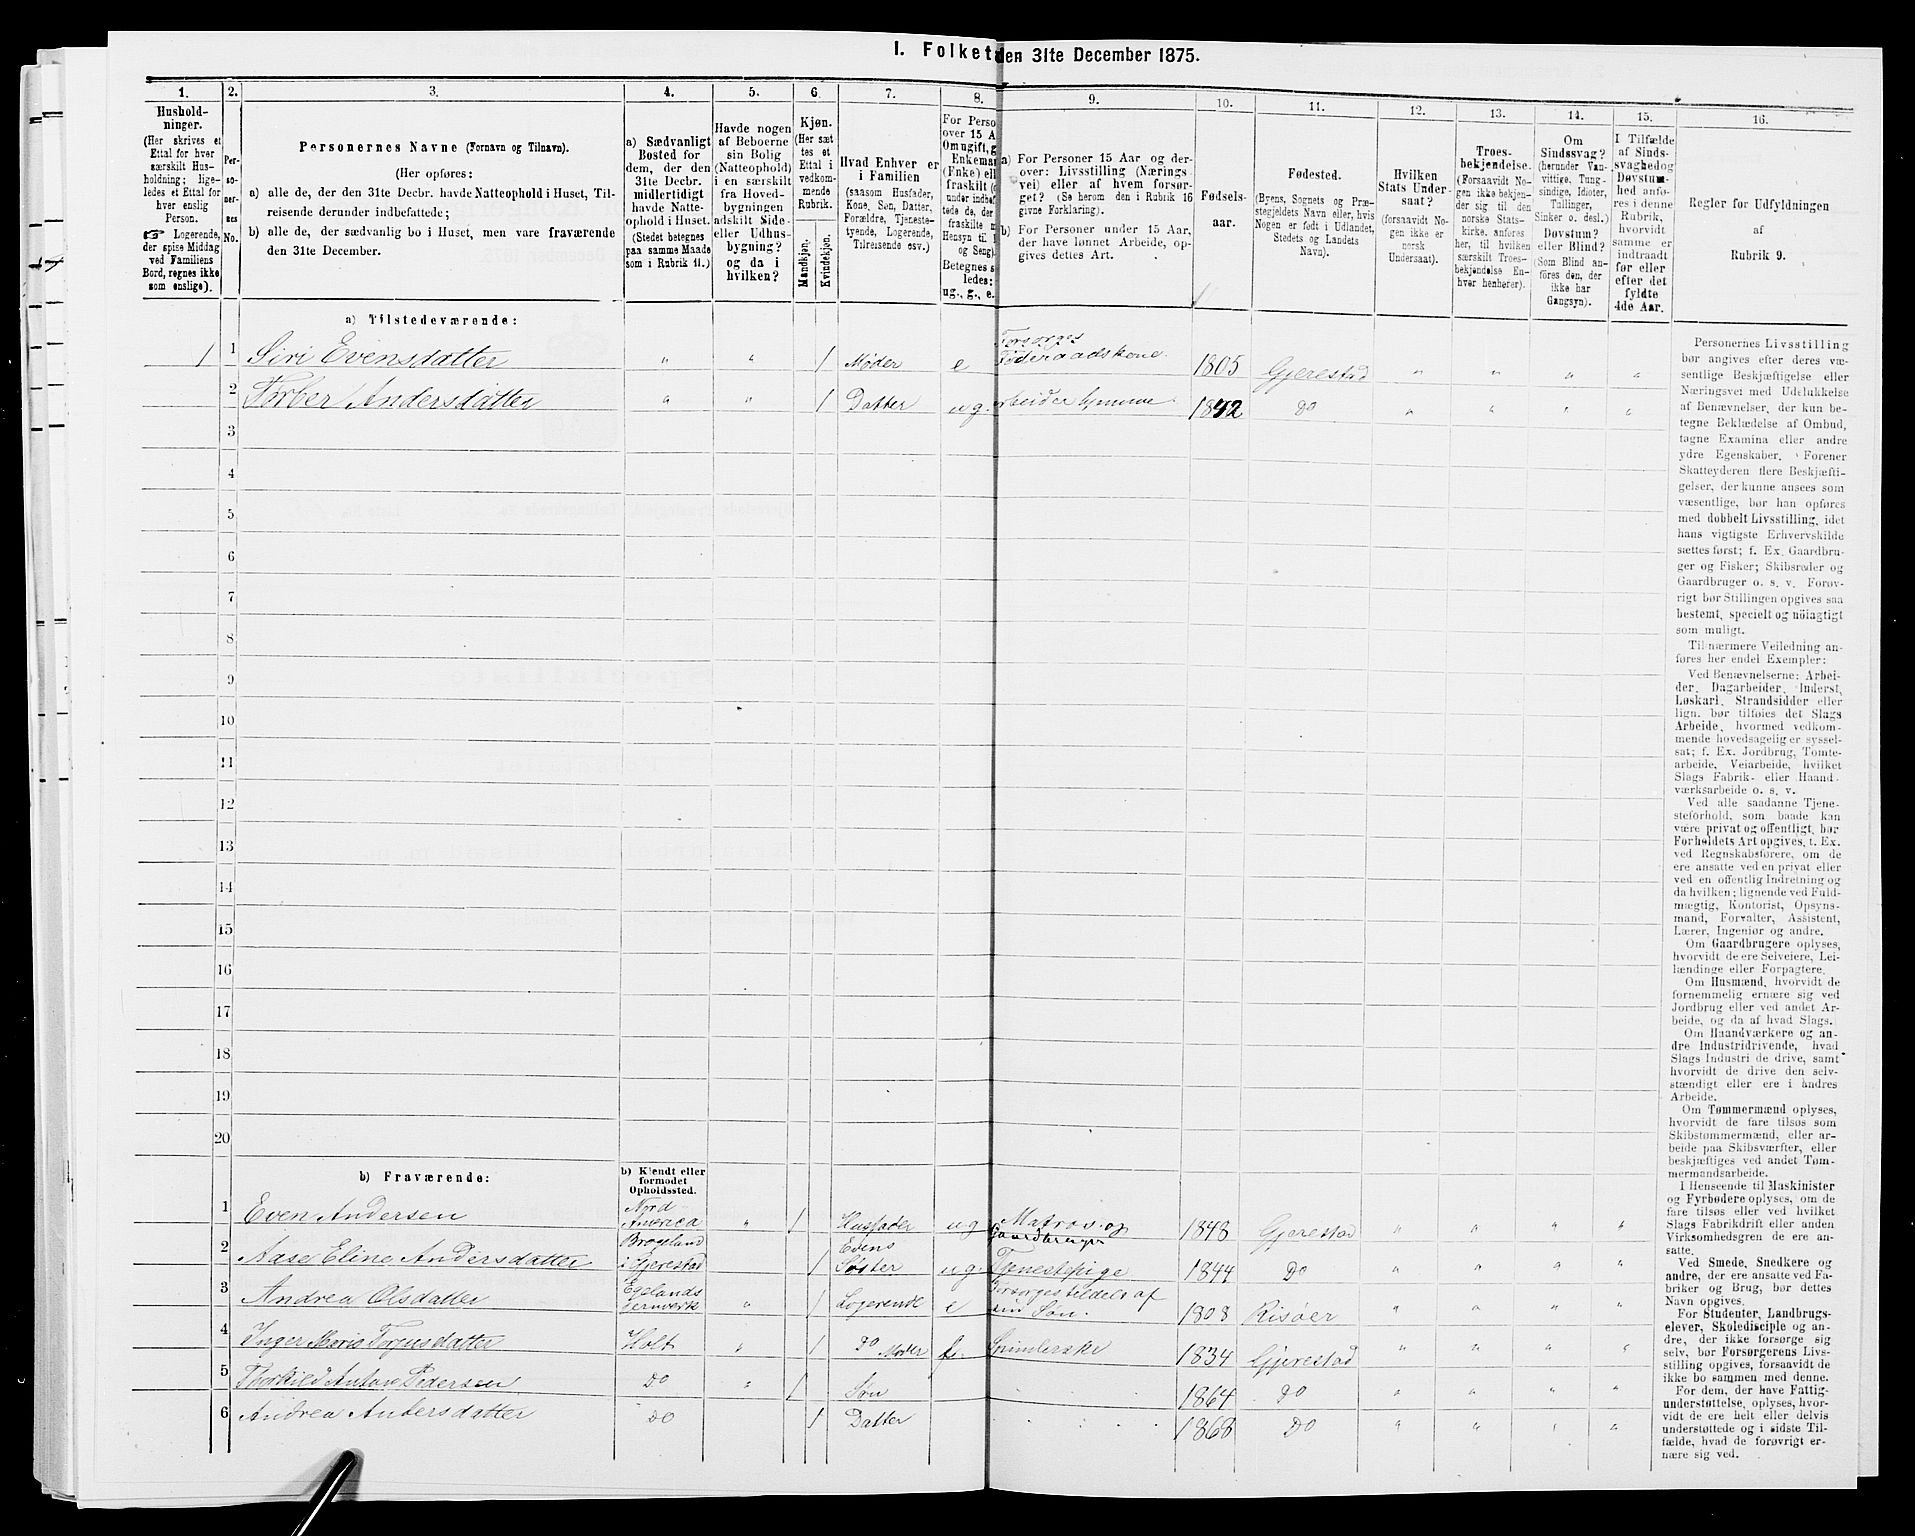 I. Folket den 31te December 1875.
1.
Hushold-
ninger.
(Her skrives et
Ettal for hver
særskilt Hus-
holdning; lige-
ledes et Ettal for
hver enslig
Person.
☞ Logerende,
der spise Middag
ved Familiens
Bord, regnes ikke
som enslige).
2.
Per-
so-
ner-
nes
No.
3.
Personernes Navne (Fornavn og Tilnavn).
(Her opføres:
a) alle de, der den 31te Decbr. havde Natteophold i Huset, Til-
reisende derunder indbefattede;
b) alle de, der sædvanlig bo i Huset, men vare fraværende
den 31te December.
4.
a) Sædvanligt
Bosted for
dem, der den
31te Decbr.
midlertidigt
havde Natte-
ophold i Huset.
(Stedet betegnes
paa samme Maade
som i Rubrik 11.)
5.
Havde nogen
af Beboerne
sin Bolig
(Natteophold)
i en særskilt
fra Hoved-
bygningen
adskilt Side-
eller Udhus-
bygning?
og da i
hvilken?
6.
Kjøn.
(Her sæt-
tes et
Ettal i
vedkom-
mende
Rubrik.
Mandkjøn.
Kvindekjøn.
7.
Hvad Enhver er
i Familien
(saasom Husfader,
Kone, Søn, Datter,
Forældre, Tjeneste-
tyende, Logerende,
Tilreisende osv.).
8.
For Perso
over 15 A
Om ugift, g
Enkeman
(Enke) ell
fraskilt (
under indbe
tede de, der
fraskilte
Hensyn til
og Seng).
Betegnes s
ledes:
ug., g., e.
9.
a) For Personer 15 Aar og der-
over: Livsstilling (Nærings-
vei) eller af hvem forsør-
get? (Se herom den i Rubrik 16
givne Forklaring).
b) For Personer under 15 Aar,
der have lønnet Arbeide, op-
gives dettes Art.
10.
Fødsels-
aar.
11.
Fødested.
(Byens, Sognets og Præ-
stegjeldets Navn eller, hvis
Nogen er født i Udlandet,
Stedets og Landets
Navn).
12.
Hvilken
Stats Under-
saat?
(forsaavidt No-
gen ikke er
norsk
Undersaat).
13.
Troes-
bekjendelse.
(Forsaavidt No-
gen ikke bekjen-
der sig til den
norske Stats-
kirke, anføres
her, til hvilken
særskilt Troes-
bekjendelse En-
hver henhører).
14.
Om
Sindssvag?
(herunder Van-
vittige, Tung-
sindige, Idioter,
Tullinger,
Sinker o. desl.)
Døvstum?
eller Blind?
(Som Blind an-
føres den, der
ikke har
Gangsyn).
15.
I Tilfælde
af Sinds-
svaghed og
Døvstum-
hed anfø-
res i denne
Rubrik,
hvorvidt
samme er
indtraadt
før eller
efter det
fyldte
4de Aar.
16.
Regler for Udfyldningen
af
Rubrik 9.
a) Tilstedeværende:
1 1 Siri Evensdatter " " 1 Møder e Forsørges Føderaadskone 1805 Gjerestad " " " "
2 Torber Andersdatter " " 1 Datter ug. hjemme 1842 Do " " " "
3
4
5
6
7
8
9
10
11
12
13
14
15
16
17
18
19
20
b) Fraværende:
b) Kjendt eller
formodet
Opholdssted.
1 Even Andersen Nord America " 1 Husfader ug Matros og Gaardbruger 1848 Gjerestad " " " "
2 Aase Eline Andersdatter Brogeland i Gjerestad 1 Evens Søster ug. Tjenestepige 1844 Do " " " "
3 Andrea Olsdatter Egelands Jernverk " 1 Logerende e Forsørges tildels af sin Søn 1808 Risöer " " " "
4 Inger Maria Torjusdatter Holt " 1 Do Moder f. Spinderske 1834 Gjerestad " " " "
5 Thorkild Anton Pedersen Do " 1 Søn 1864 Do " " " "
6 Andrea Andersdatter Do 1 Datter 1868 Do " " " "
Personernes Livsstilling
bør angives efter deres væ-
sentlige Beskjæftigelse eller
Næringsvei med Udelukkelse
af Benævnelser, der kun be-
tegne Beklædelse af Ombud,
tagne Examina eller andre
ydre Egenskaber. Forener
Skatteyderen flere Beskjæfti-
gelser, der kunne ansees som
væsentlige, bør han opføres
med dobbelt Livsstilling, idet
hans vigtigste Erhvervskilde
sættes først; f. Ex. Gaardbru-
ger og Fisker; Skibsreder og
Gaardbruger o. s. v. Forøv-
rigt bør Stillingen opgives saa
bestemt, specielt og nöiagtigt
som muligt.
Til nærmere Veiledning an-
føres her endel Exempler:
Ved Benævnelserne: Arbei-
der, Dagarbeider, Inderst,
Løskarl, Strandsidder eller
lign. bør tilføies det Slags
Arbeide, hvormed vedkom-
mende hovedsagelig er syssel-
sat; f. Ex. Jordbrug, Tomte-
arbeide, Veiarbeide, hvilket
Slags Fabrik- eller Haand-
værksarbeide o. s. v.
Ved alle saadanne Tjene-
steforhold, som baade kan
være privat og offentligt, bør
Forholdets Art opgives, t. Ex.
ved Regnskabsførere, om de
ere ansatte ved en privat eller
ved en offentlig Indretning og
da hvilken; lignende ved Fuld-
mægtig, Kontorist, Opsyns-
mand, Forvalter, Assistent,
Lærer, Ingeniør og andre.
Om Gaardbrugere oplyses,
hvorvidt de ere Selveiere, Lei-
lændinge eller Forpagtere.
Om Husmænd, hvorvidt de
fornemmelig ernære sig ved
Jordbrug eller ved andet Ar-
beide, og da af hvad Slags.
Om Haandværkere og an-
dre Industridrivende, hvad
Slags Industri de drive, samt
hvorvidt de drive den selv-
stændigt eller ere i andres
Arbeide.
Om Tømmermænd oplyses,
hvorvidt de fare tilsøs som
Skibstømmermænd, eller ar-
beide paa Skibsværfter, eller
beskjæftiges ved andet Tøm-
mermandsarbeide.
I Henseende til Maskinister
og Fyrbødere oplyses, om de
fare tilsøs eller ved hvilket
Slags Fabrikdrift eller anden
Virksomhedsgren de ere an-
satte.
Ved Smede, Snedkere og
andre, der ere ansatte ved Fa-
briker og Brug, bør dettes
Navn opgives.
For Studenter, Landbrugs-
elever, Skoledisciple og an-
dre, der ikke forsørge sig
selv, bør Forsørgerens Livs-
stilling opgives, forsaavidt de
ikke bo sammen med denne.
For dem, der have Fattig-
understøttelse, oplyses, hvor-
vidt de ere helt eller delvis
understøttede og i sidste Til-
fælde, hvad de forøvrigt er-
nære sig ved.